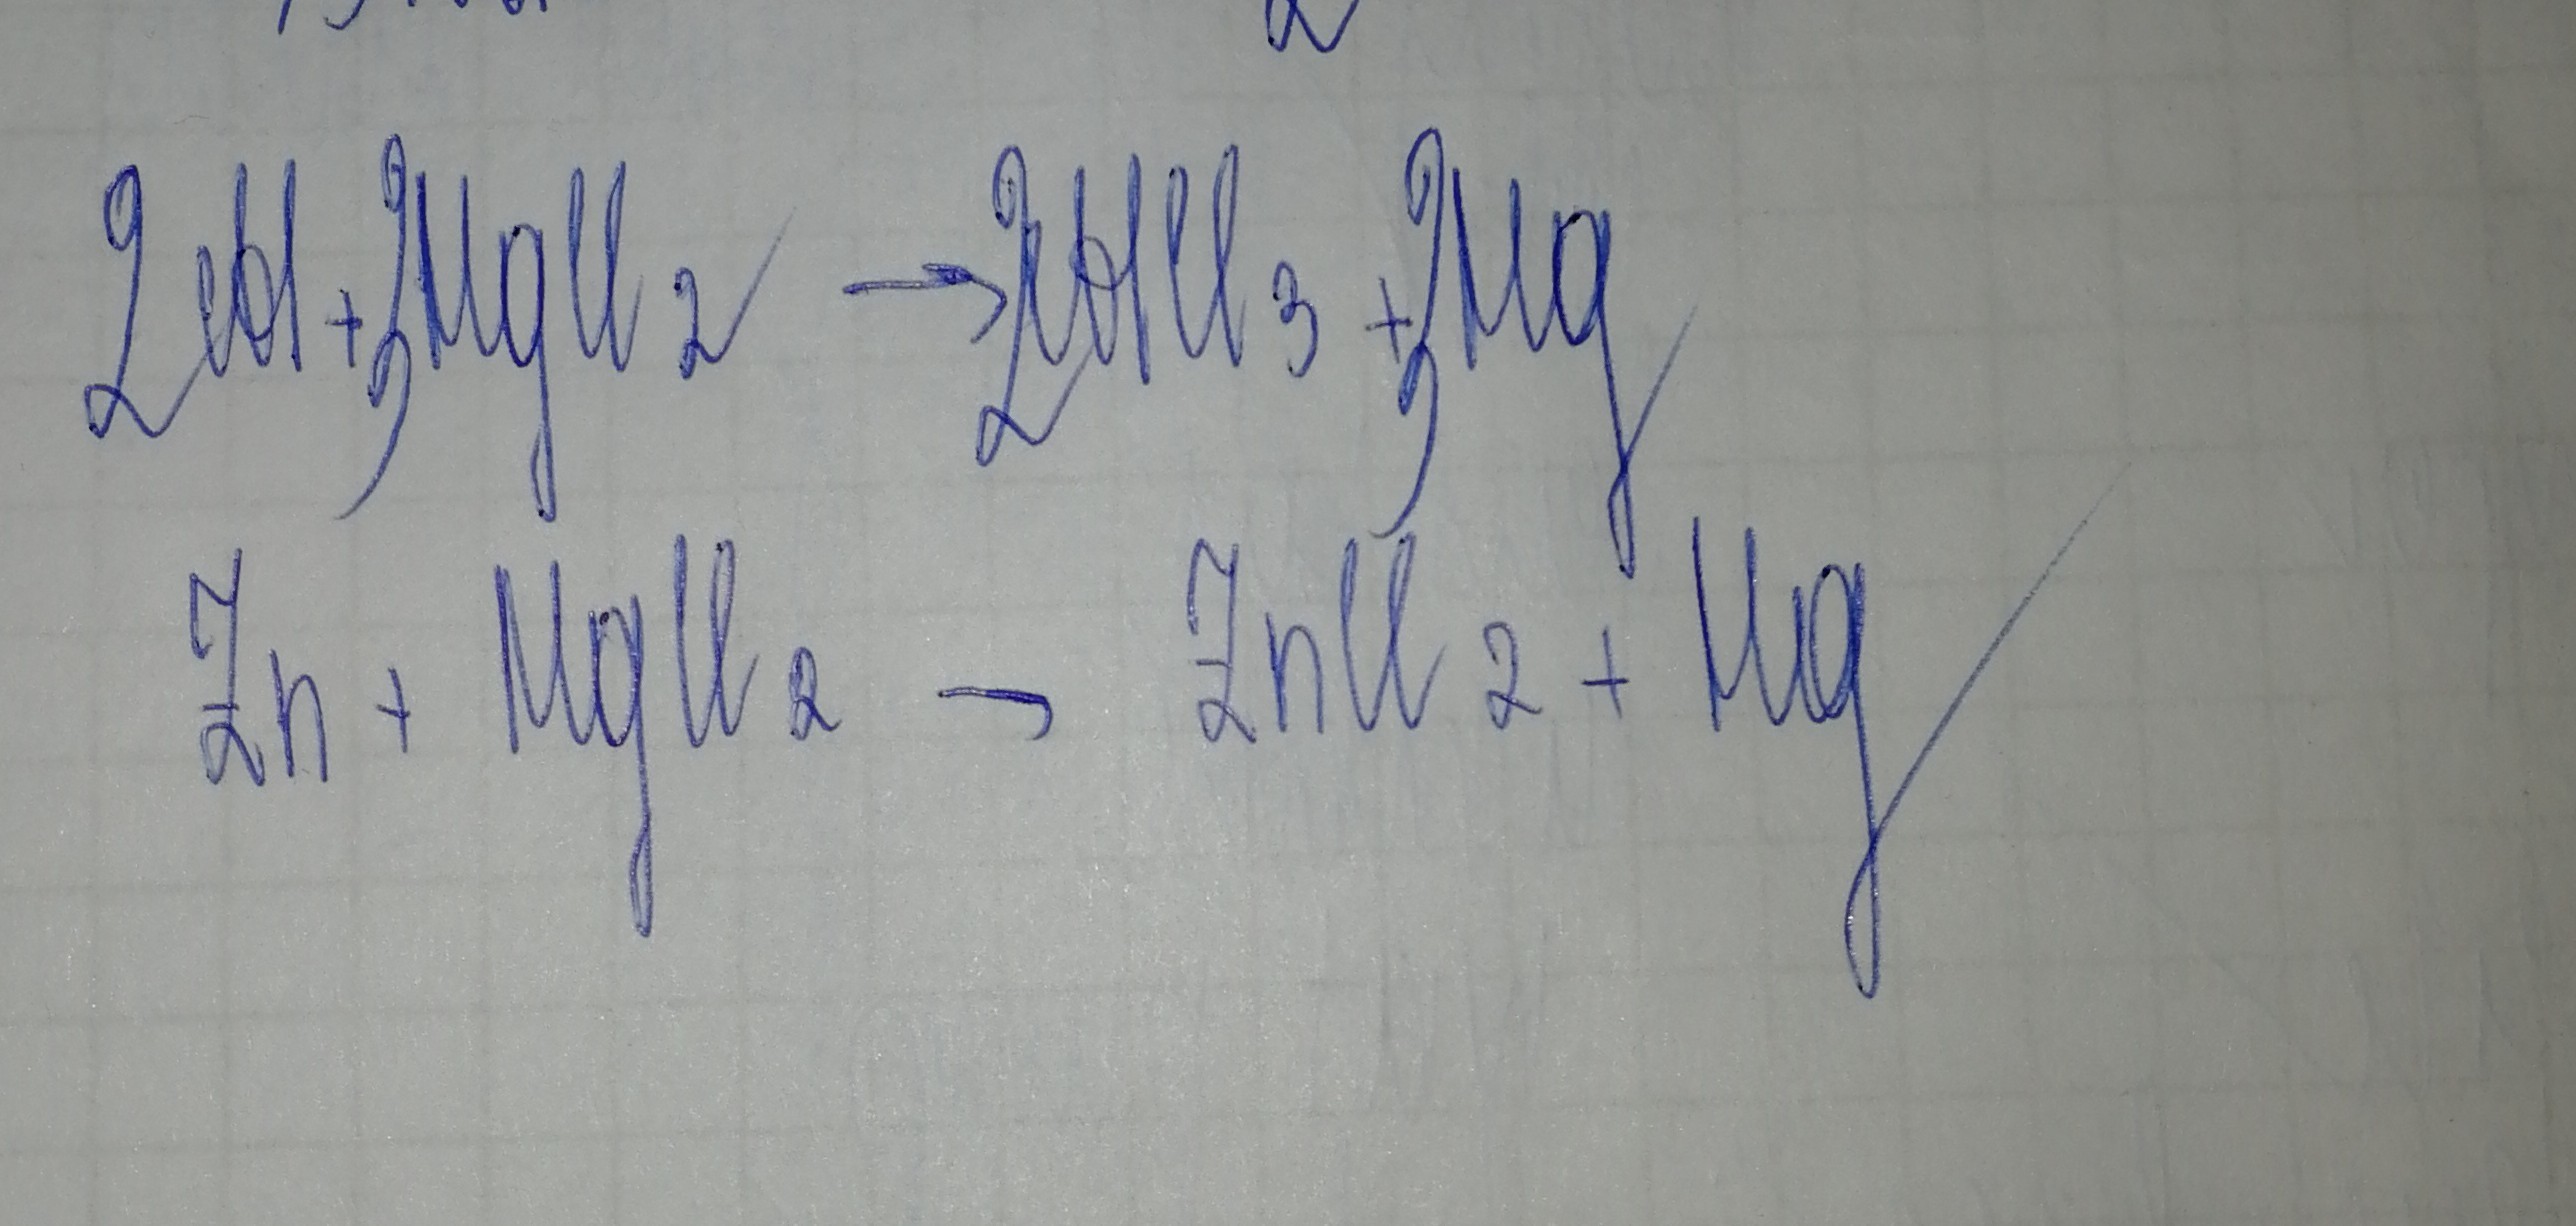 2Al+3MgCl2 → 2AlCl3+3Mg
Zn + MgCl2 → ZnCl2 + Mg